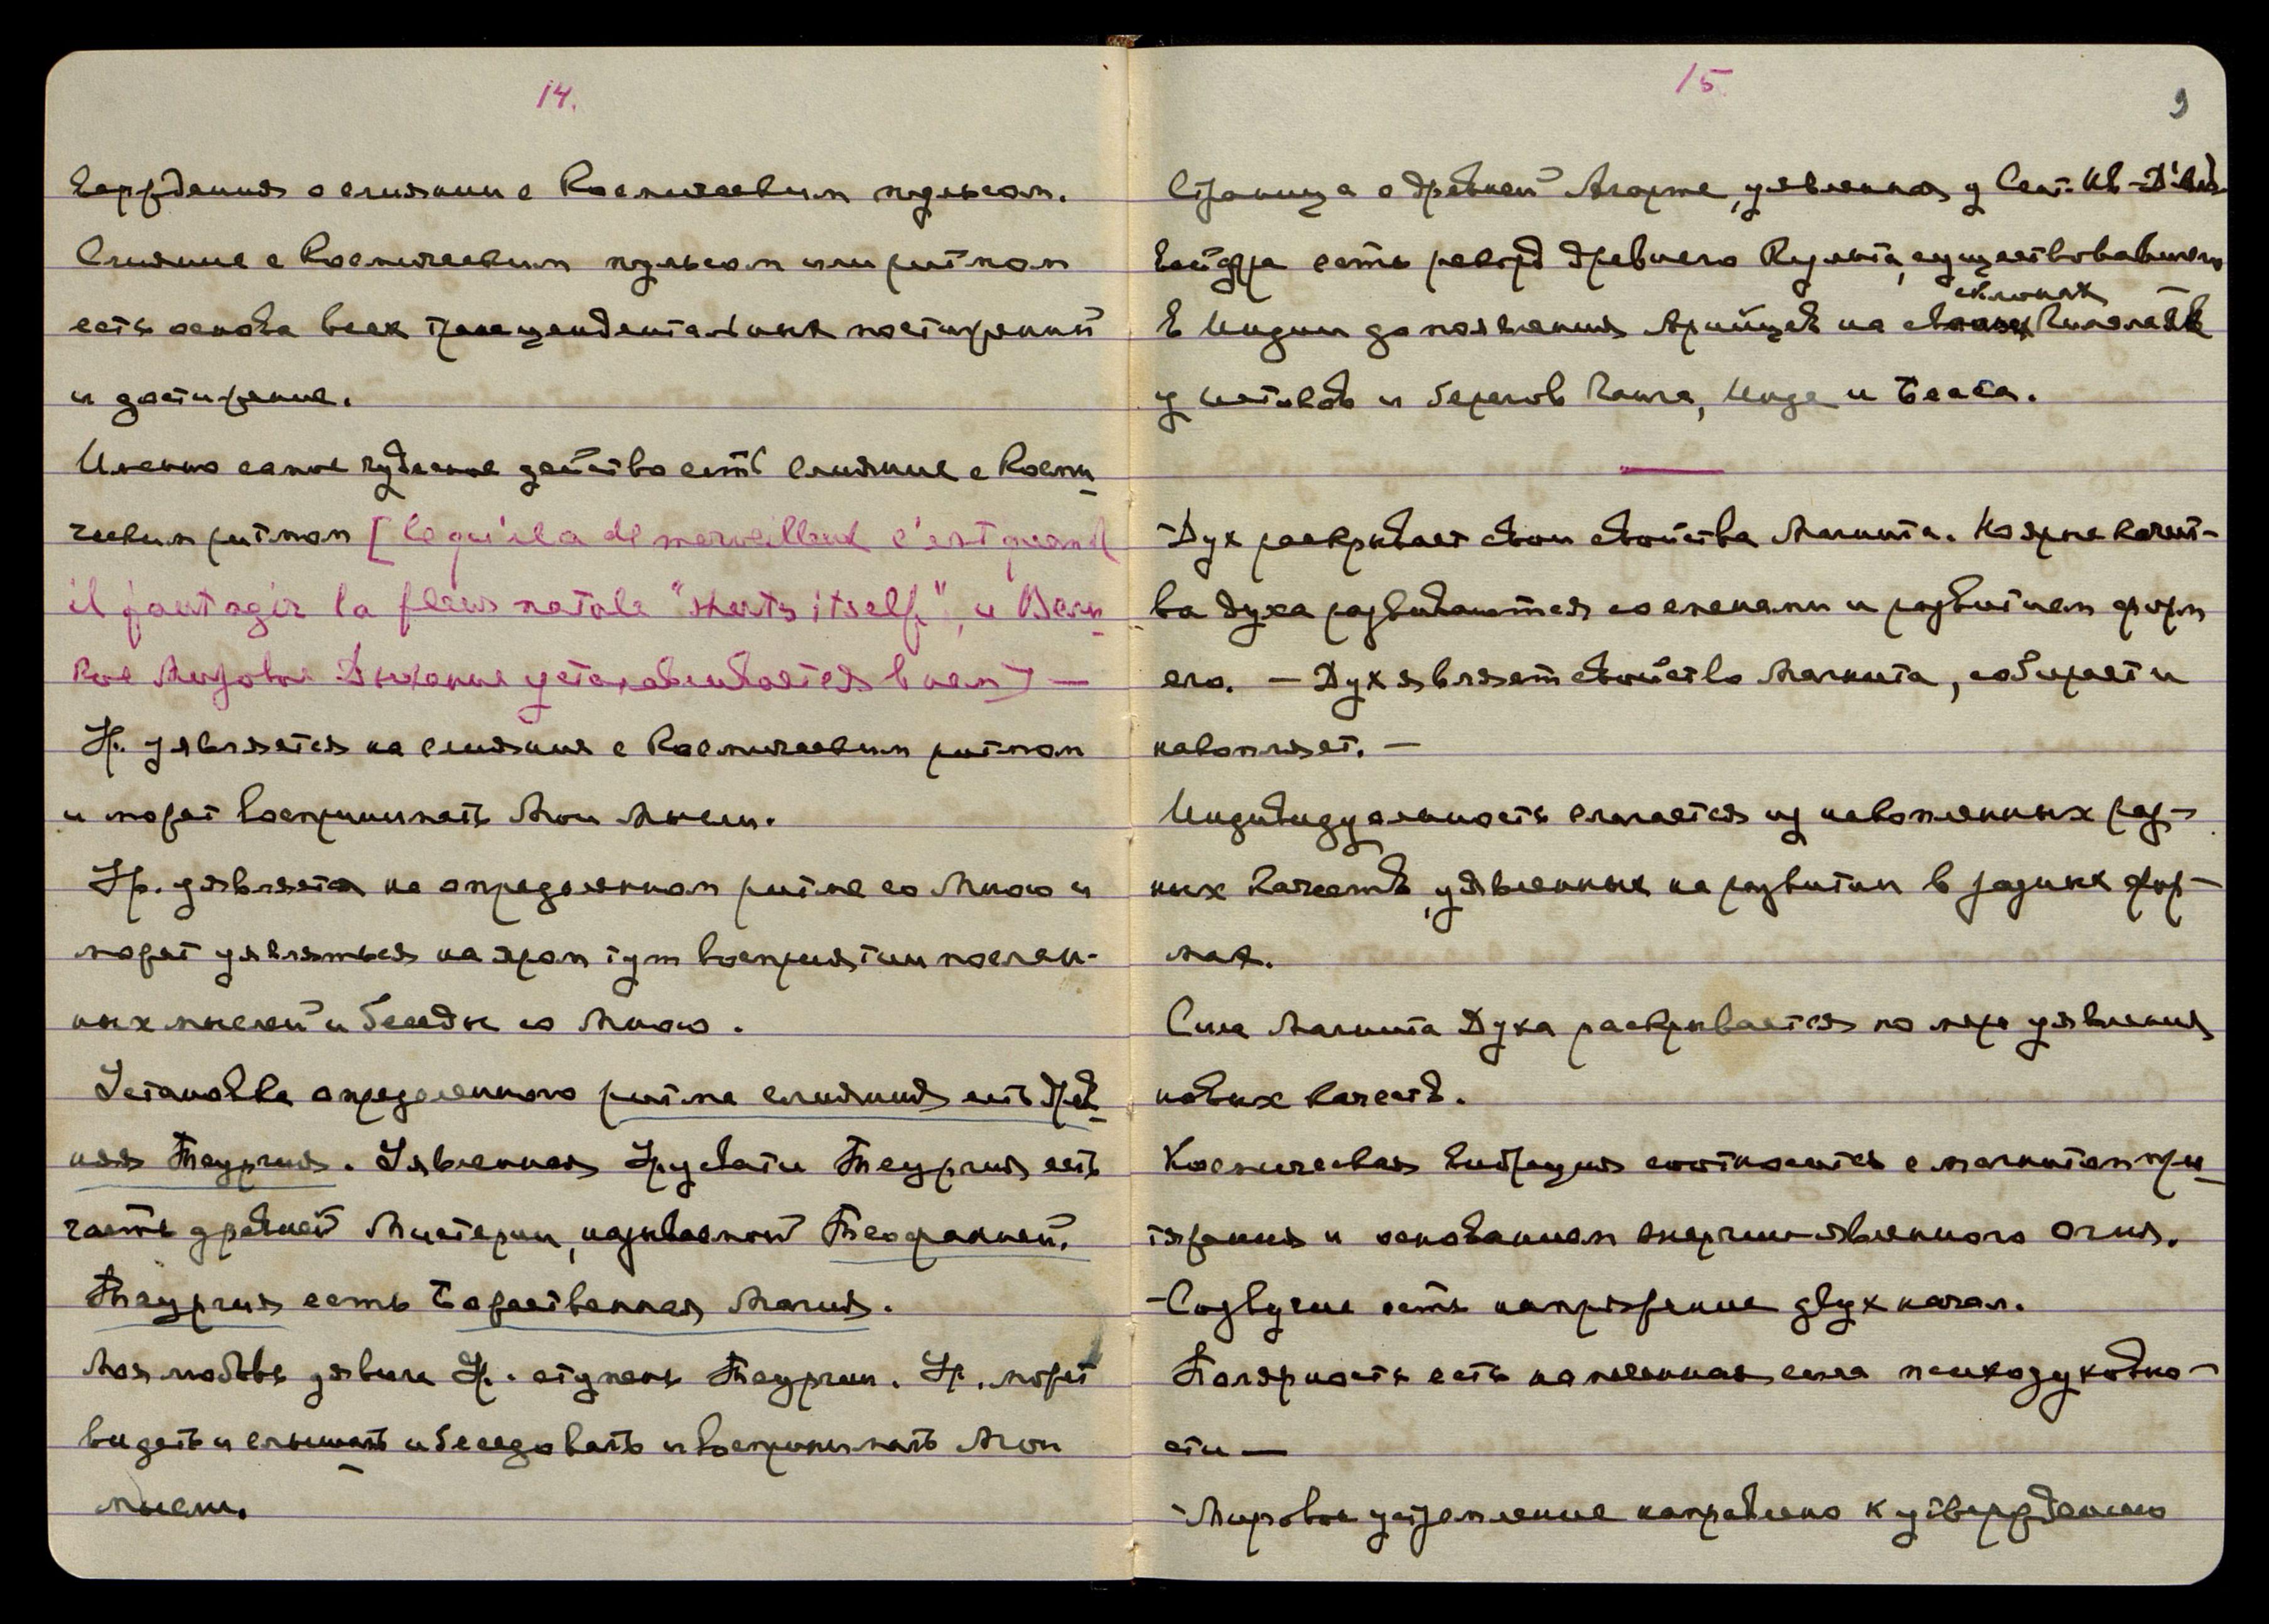 14.
верждения о слиянии с Космическим пульсом.
Слияние с Космическим пульсом или ритмом
есть основа всех трансцендентальных постижений
и достижение.
Именно самое чудесное действо есть слияние с Косми-
ческим ритмом [Ce qu'il a de merveilleux c'est quand
il faut agir la fleur natale "starts itself", и Вели-
кое Мировое Дыхание устанавливается в нем] —
Ур. уявляется на слияния с Космическим ритмом
и может воспринимать Мои Мысли.
Ур. уявляется на определенном ритме со Мною и
может уявляться на яром тут восприятии послан-
ных мыслей и беседы со Мною.
Установка определенного ритма слияния есть древ-
няя Теургия. Уявленная Урусвати Теургия есть
часть древней Мистерии, называемой Теофанией.
Теургия есть Божественная Магия.
Моя любовь уявила Ур. ступень Теургии. Ур. может
видеть и слышать и беседовать и воспринимать Мои
мысли.
15
9
Страница о древней Агарте, уявленная у Сент. Ив-Д'
есть рекорд древнего Культа, существовавшего
в Индии до появления Арийцев на склонах Гималаев
у истоков и берегов Ганга, Инда и Беаса.
-Дух раскрывает свои свойства Магнита. Но ярые качест-
ва духа развиваются со сменами и развитием форм
его. — Дух являет свойство Магнита, собирает и
накопляет. —
Индивидуальность слагается из накопленных раз-
ных качеств, уявленных на развитии в разных фор-
мах.
Сила Магнита Духа раскрывается по мере уявления
новых качеств.
Космическая Вибрация соотносится с магнитом при-
тяжения и основанием энергии явленного огня.
-Созвучие есть напряжение двух начал.
Полярность есть напряженная сила психодуховно-
сти —
-Мировое устремление направлено к утверждению